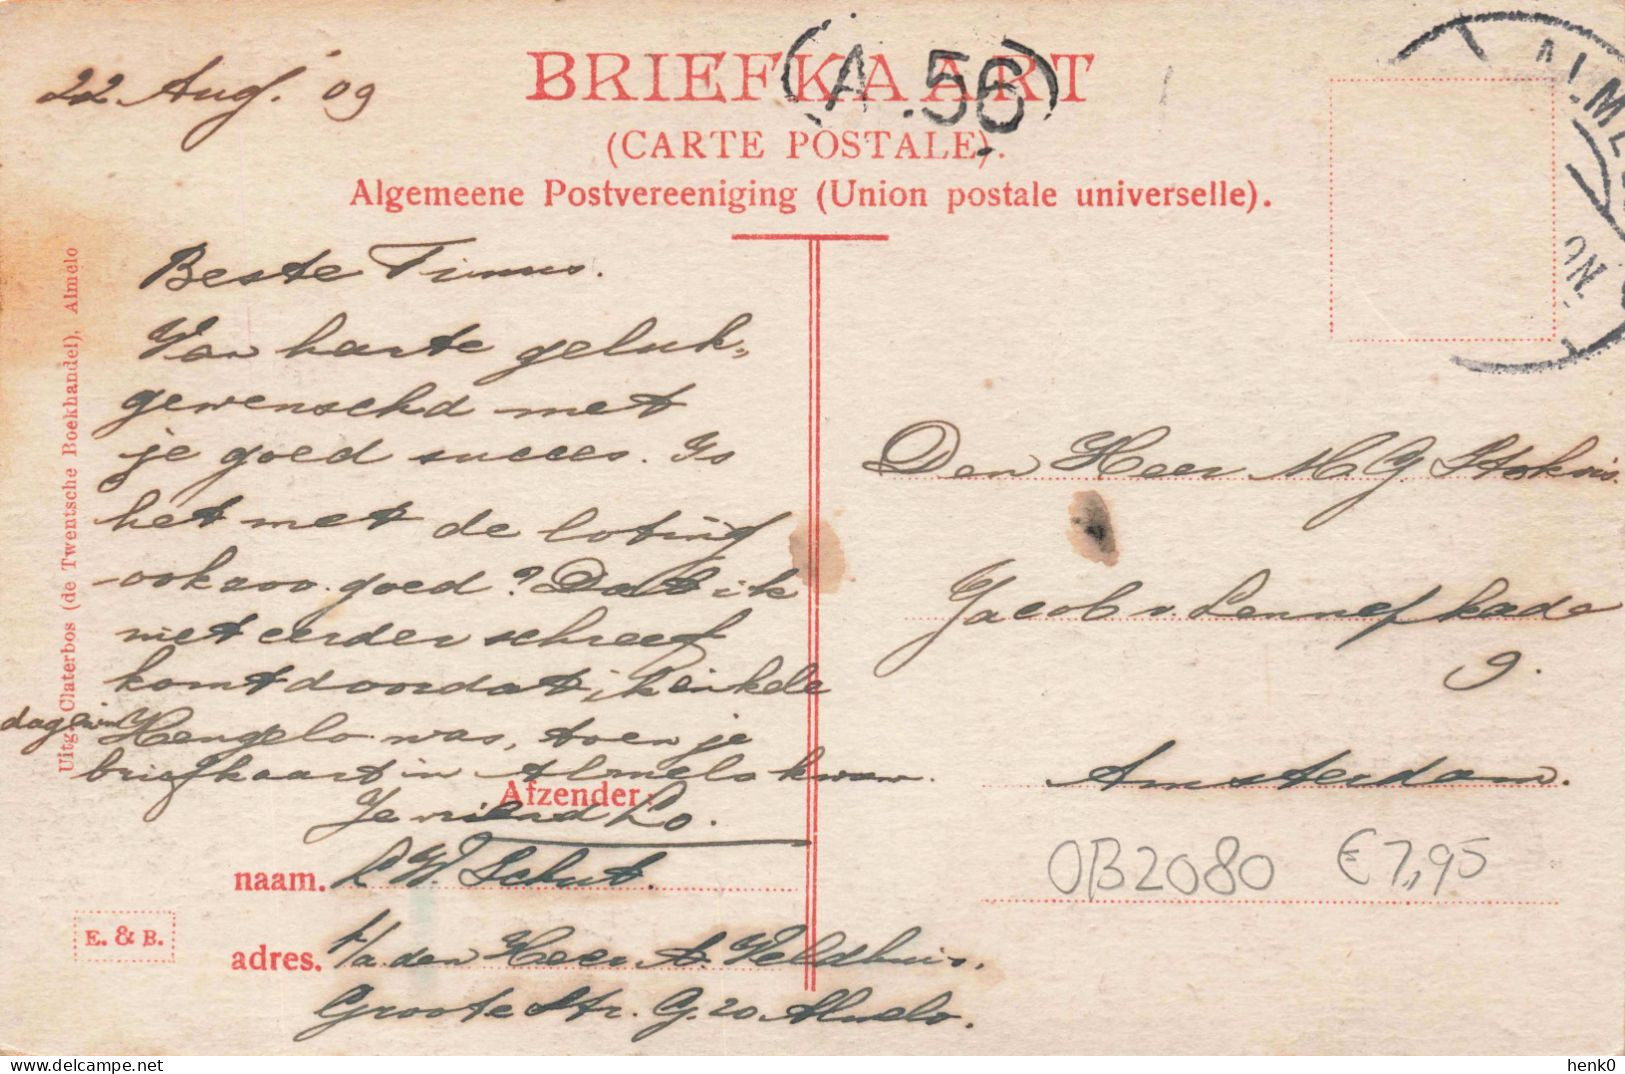 22 Aug. '09
BRIEFKAART
(A.56)
(CARTE POSTALE).
Algemeene Postvereeniging (Union postale universelle).
ALMELO
Beste Tinus.
Van harte geluk-
gewenscht met
je goed succes. Is
het met de loting
ook zoo goed? Dat ik
niet eerder schreef
komt doordat ik enkele
dagen in Hengelo was, toen je
briefkaart in Almelo kwam.
Je vriend Lo.
Afzender:
naam. L W. Schut.
adres. p/a. den Heer A. Veldhuis.
Groote Str. G. 20 Almelo.
Den Heer M G Stokvis.
Jacob v. Lennepkade
9.
Amsterdam.
OB2080 €7,95
Uitg. Claterbos (de Twentsche Boekhandel), Almelo
E. & B.
henk0